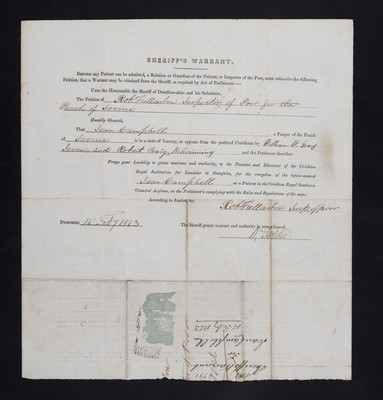 SHERIFF'S WARRANT.
BEFORE any Patient can be admitted, a Relation or Guardian of the Patient, or Inspector of the Poor, must subscribe the following
Petition, that a Warrant may be obtained from the Sheriff, as required by Act of Parliament:—
Unto the Honourable the Sheriff of Dumfries-shire and his Substitute,
The Petition of Robt Fullarton Inspector of Poor for the
Parish of Irvine
Humbly Sheweth,
That Jean Campbell a Pauper of the Parish
of Irvine is in a state of Lunacy, as appears from the produced Certificate by William
Irvine and Robert Craig Kilwinning and the Petitioner therefore
Prays your Lordship to grant warrant and authority, to the Trustees and Directors of the Crichton
Royal Institution for Lunatics at Dumfries, for the reception of the before-named
Jean Campbell as a Patient in the Crichton Royal Southern
Counties Asylum, on the Petitioner's complying with the Rules and Regulations of the same.
According to Justice &c.
Robt Fullarton Inspr of poor
DUMFRIES, 15 Feby 1853 The Sheriff grants warrant and authority as above craved.
Sheriff's Warrant
for
Jean Campbell
15 Feby 1853